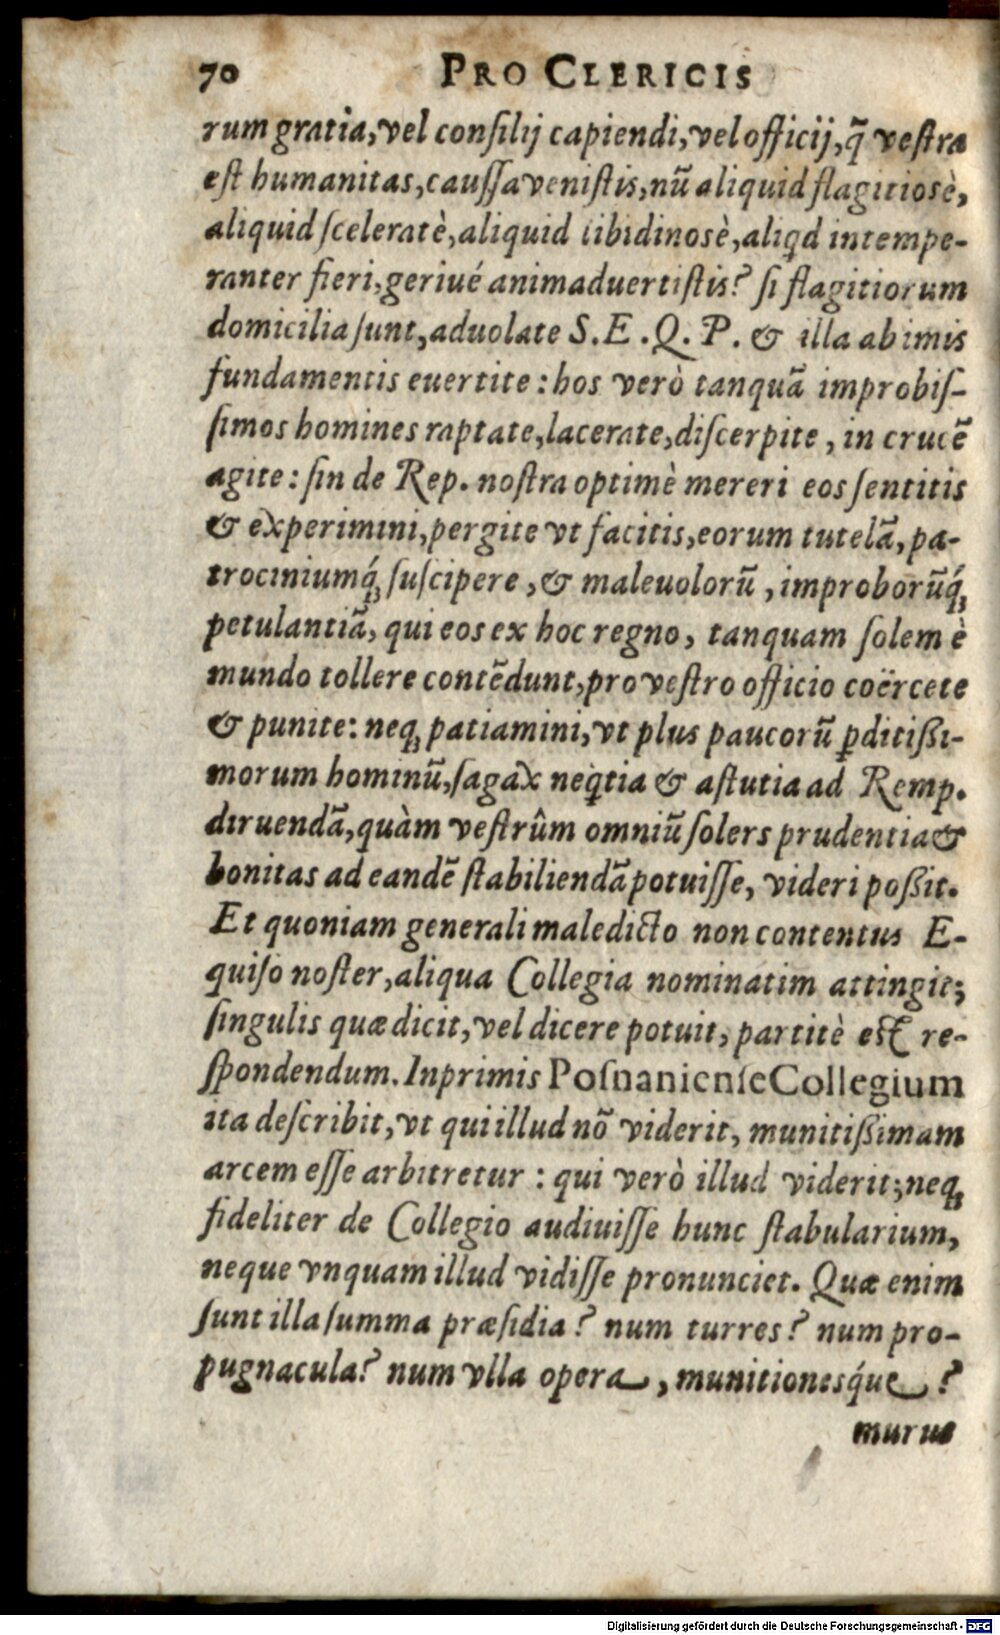 70 PRO CLERICIS
rum gratia, vel consilij capiendi, vel officij, q̃ vestra
est humanitas, caussa venistis, nũ aliquid flagitiosè,
aliquid sceleratè, aliquid libidinosè, aliqd intempe-
ranter fieri, geriué animaduertistis? si flagitiorum
domicilia sunt, aduolate S. E. Q. P. & illa ab imis
fundamentis euertite: hos verò tanquã improbis-
simos homines raptate, lacerate, discerpite, in crucẽ
agite: sin de Rep. nostra optimè mereri eos sentitis
& experimini, pergite vt facitis, eorum tutelã, pa-
trociniumq́; suscipere, & maleuolorũ, improborũq́;
petulantiã, qui eos ex hoc regno, tanquam solem è
mundo tollere contẽdunt, pro vestro officio coërcete
& punite: neq; patiamini, vt plus paucorũ ꝑditißi-
morum hominũ, sagax neq̃tia & astutia ad Remp.
diruendã, quàm vestrûm omniũ solers prudentia &
bonitas ad eandẽ stabiliendã potuisse, videri poßit.
Et quoniam generali maledicto non contentus E-
quiso noster, aliqua Collegia nominatim attingit;
singulis quæ dicit, vel dicere potuit, partitè est re-
spondendum. Inprimis Posnaniense Collegium
ita describit, vt qui illud nõ viderit, munitißimam
arcem esse arbitretur: qui verò illud viderit; neq;
fideliter de Collegio audiuisse hunc stabularium,
neque vnquam illud vidisse pronunciet. Quæ enim
sunt illa summa præsidia? num turres? num pro-
pugnacula? num vlla opera, munitionesq́ue?
murus
Digitalisierung gefördert durch die Deutsche Forschungsgemeinschaft - DFG